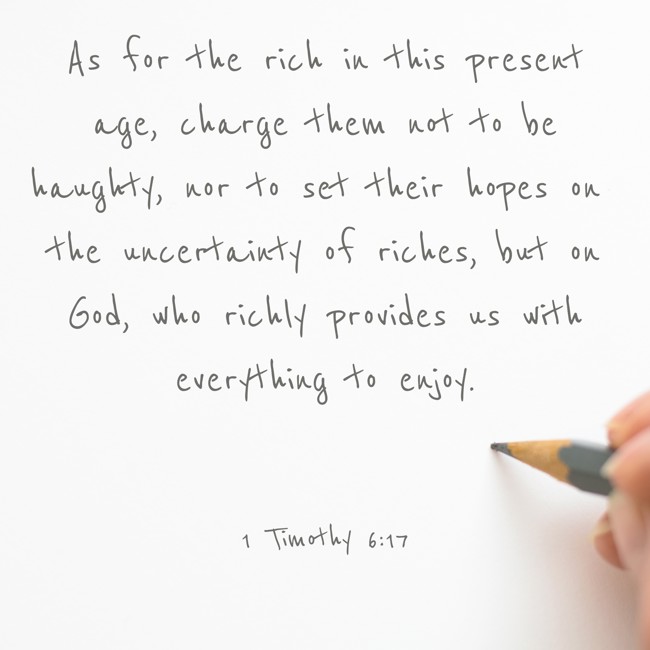 As for the rich in this present
age, charge them not to be
haughty, nor to set their hopes on
the uncertainty of riches, but on
God, who richly provides us with
everything to enjoy.
1 Timothy 6:17